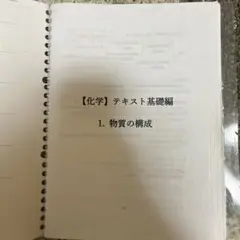 【化学】テキスト基礎編
1. 物質の構成